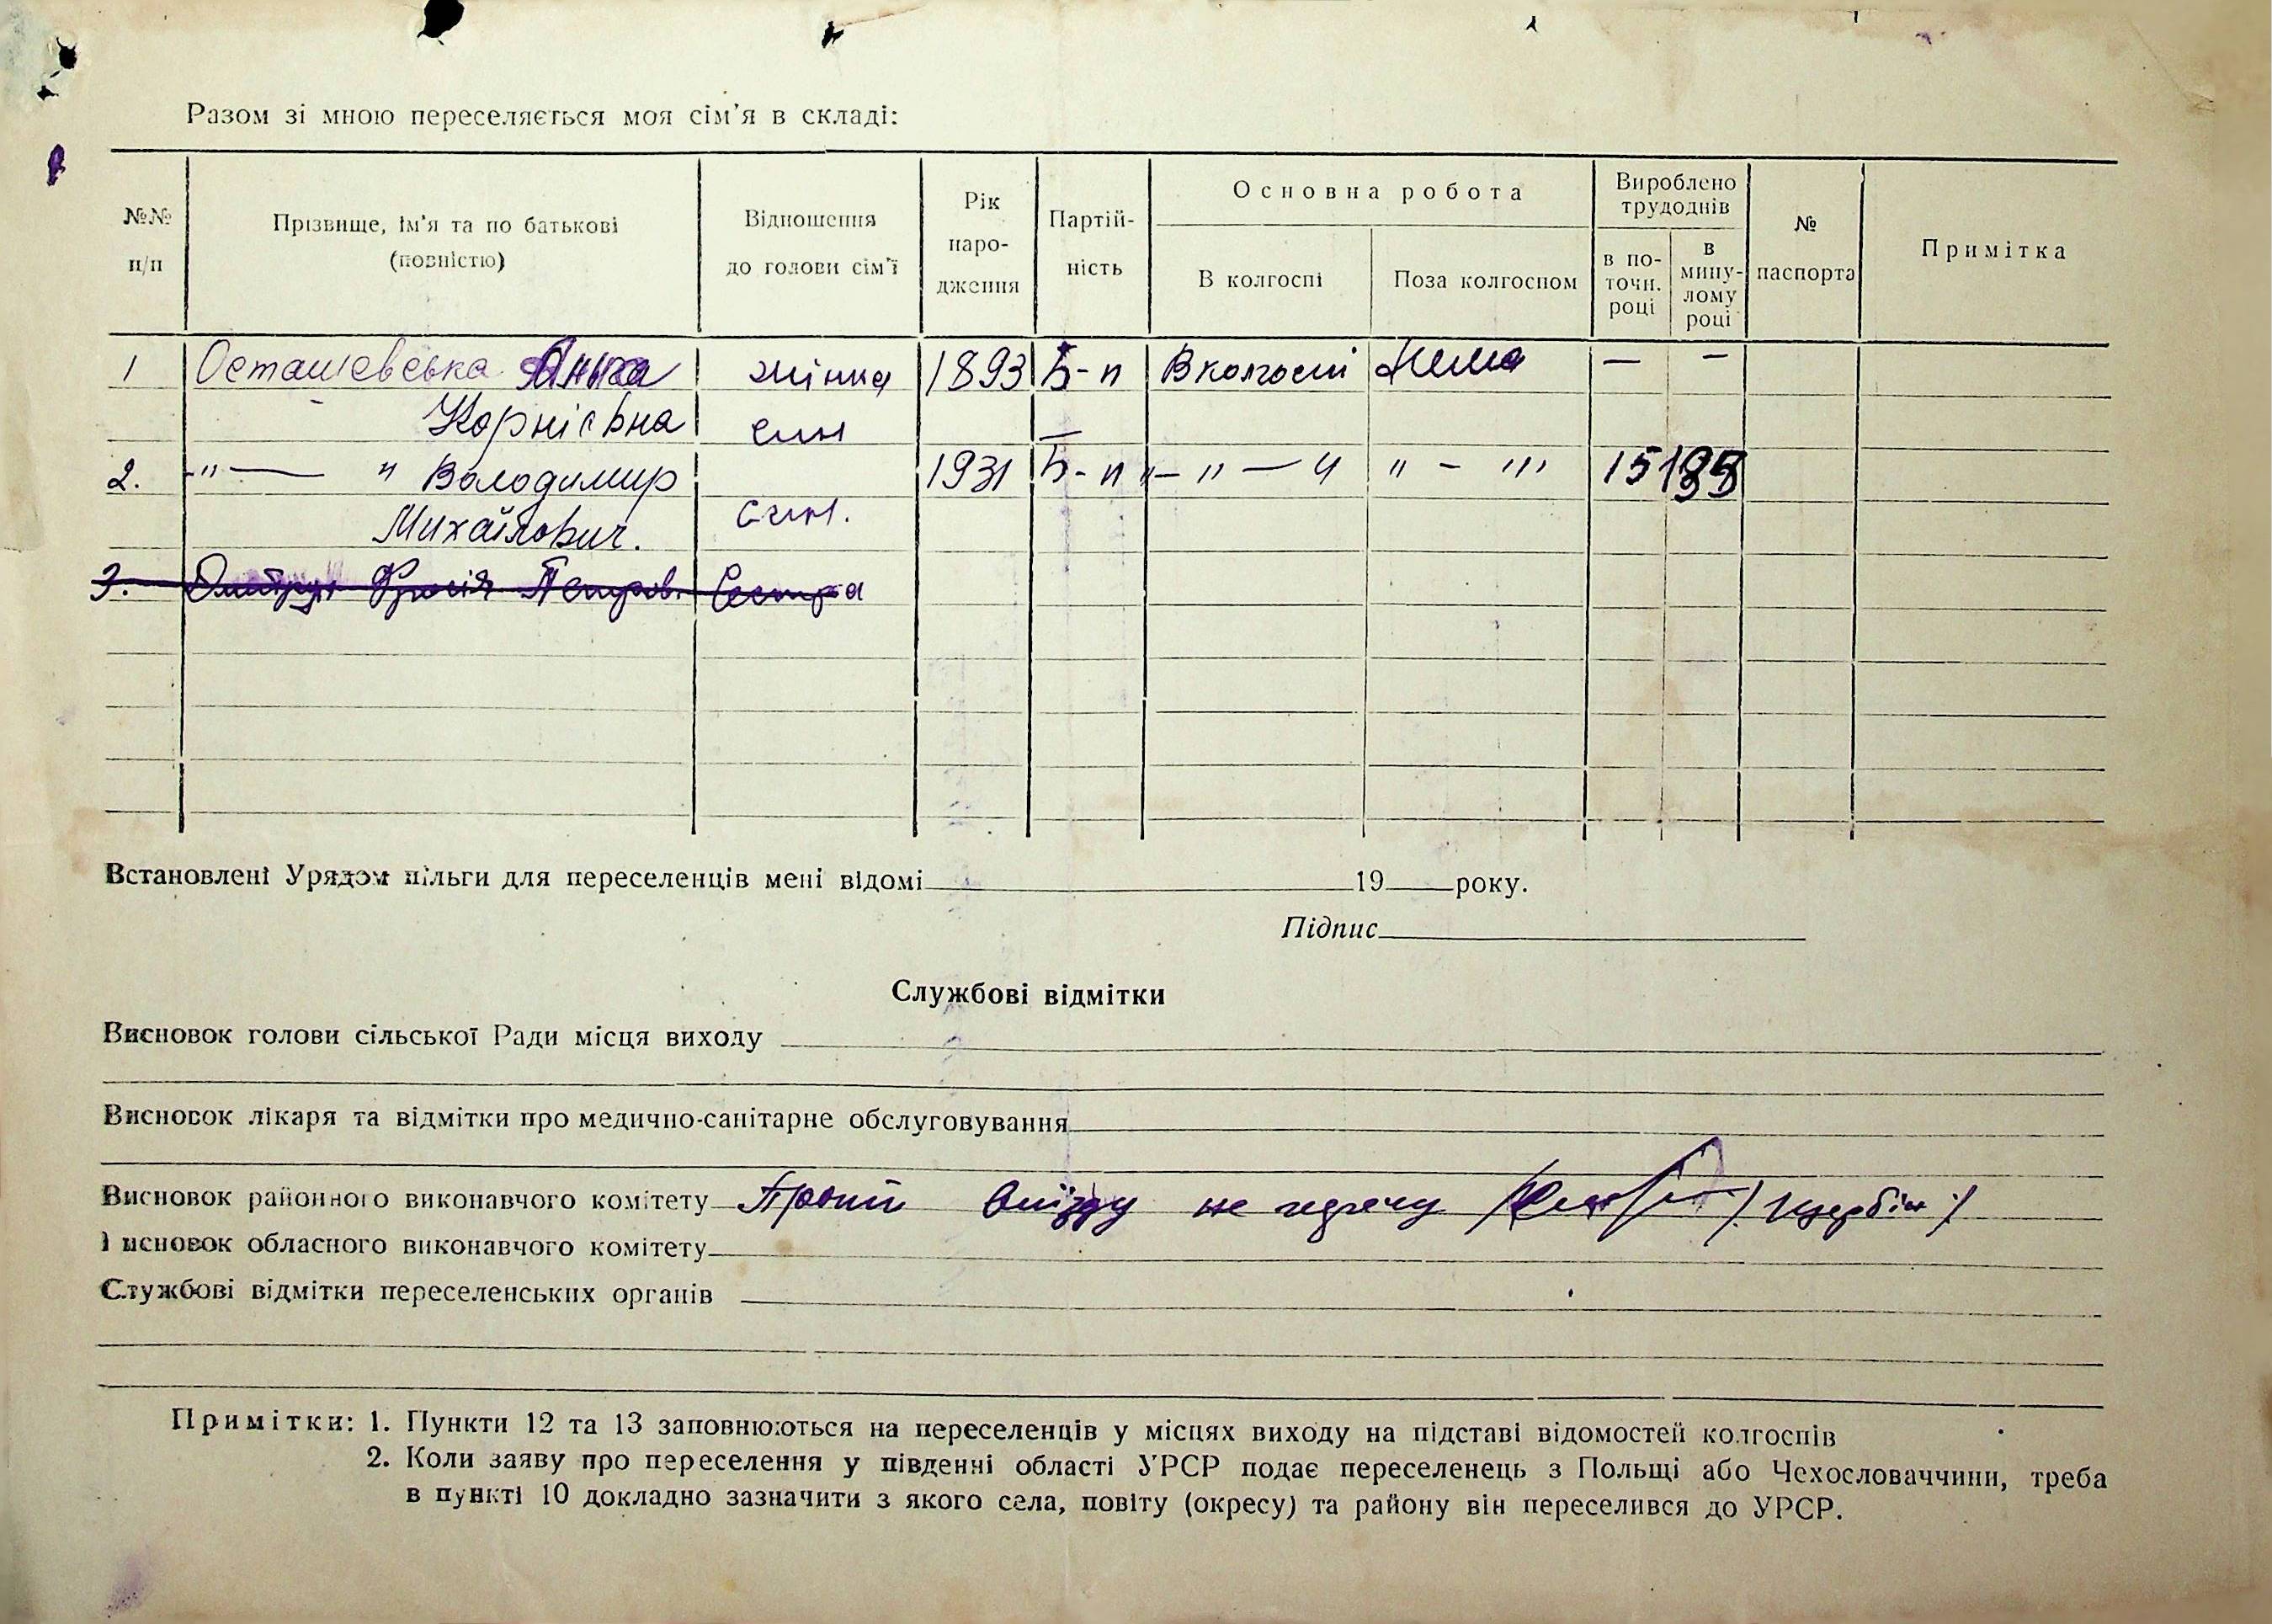 Разом зі мною переселяється моя сім'я в складі:
№№ п/п
Прізвище, ім'я та по батькові (повністю)
Відношення до голови сім'ї
Рік народження
Партійність
Основна робота
В колгоспі
Поза колгоспом
Вироблено трудоднів
в поточн. році
в минулому році
№ паспорта
Примітка
1 Осташевська Анна жінка 1893 Б-п В колгоспі Нема — —
Корніївна син —
2. -"— " Володимир 1931 Б-п "— " — " " - "' 15
Михайлович. син.
3. Петрів. Сестра
Встановлені Урядом пільги для переселенців мені відомі 19 року.
Підпис
Службові відмітки
Висновок голови сільської Ради місця виходу
Висновок лікаря та відмітки про медично-санітарне обслуговування
Висновок районного виконавчого комітету Проти виїзду не
Висновок обласного виконавчого комітету
Службові відмітки переселенських органів
Примітки: 1. Пункти 12 та 13 заповнюються на переселенців у місцях виходу на підставі відомостей колгоспів
2. Коли заяву про переселення у південні області УРСР подає переселенець з Польщі або Чехословаччини, треба
в пункті 10 докладно зазначити з якого села, повіту (окресу) та району він переселився до УРСР.